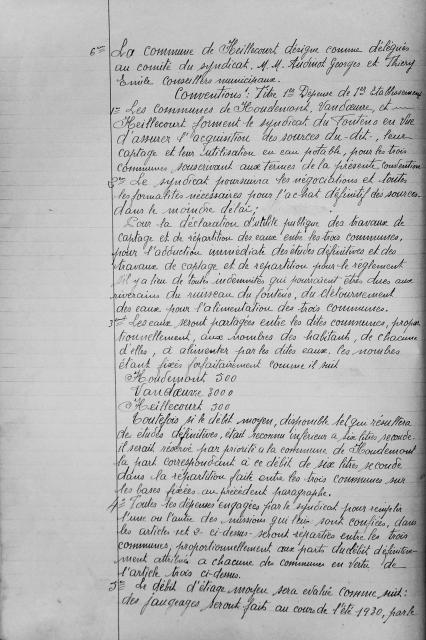 6° La commune de Heillecourt désigne comme délégués
au comité du syndicat. M.M. Audinot Georges et Thiery
Emile Conseillers municipaux.
Conventions: Titre 1er Dépense de 1er Etablissement
1° Les communes de Houdemont, Vandœuvre, et
Heillecourt forment le syndicat du Fonteno en vue
d'assurer l'acquisition des sources du-dit, leur
captage et leur utilisation en eau potable, pour les trois
communes, souscrivant aux termes de la présente convention
2° Le syndicat poursuivra les négociations et toutes
les formalités nécessaires pour l'achat définitif des sources
dans le moindre délai;
Pour la déclaration d'utilité publique des travaux de
captage et de répartition des eaux entre les trois communes,
pour l'adduction immédiate des études définitives et des
travaux de captage et de répartition pour le règlement
s'il y a lieu de toutes indemnités qui pourraient êtres dues aux
riverains du ruisseau du fonteno, du détournement
des eaux pour l'alimentation des trois communes.
3° Les eaux seront partagées entre les dites communes, propor
tionnellement, aux nombres des habitants, de chacune
d'elles, à alimenter par les dites eaux, les nombres
étant fixés forfaitairement comme il suit
Houdemont 500
Vandœuvre 3000
Heillecourt 500
Toutefois si le débit moyen, disponible tel qui résultera
de études définitives, était reconnu inférieur à six litres seconde
il serait réservé par priorité à la commune de Houdemont
la part correspondant à ce débit de six litres seconde
dans la répartition faite entre les trois communes sur
les bases fixées au précédent paragraphe.
4° Toutes les dépenses engagées par le syndicat pour remplir
l'une ou l'autre des missions qui leur sont confiées, dans
les articles 1 et 2 ci-dessus seront réparties entre les trois
communes, proportionnellement aux parts du débit définitive
ment attribué à chacune des communes en vertu de
l'article trois ci-dessus.
5° Le débit d'étiage moyen sera évalué comme suit:
des jaugeages seront fait au cours de l'été 1930, par le